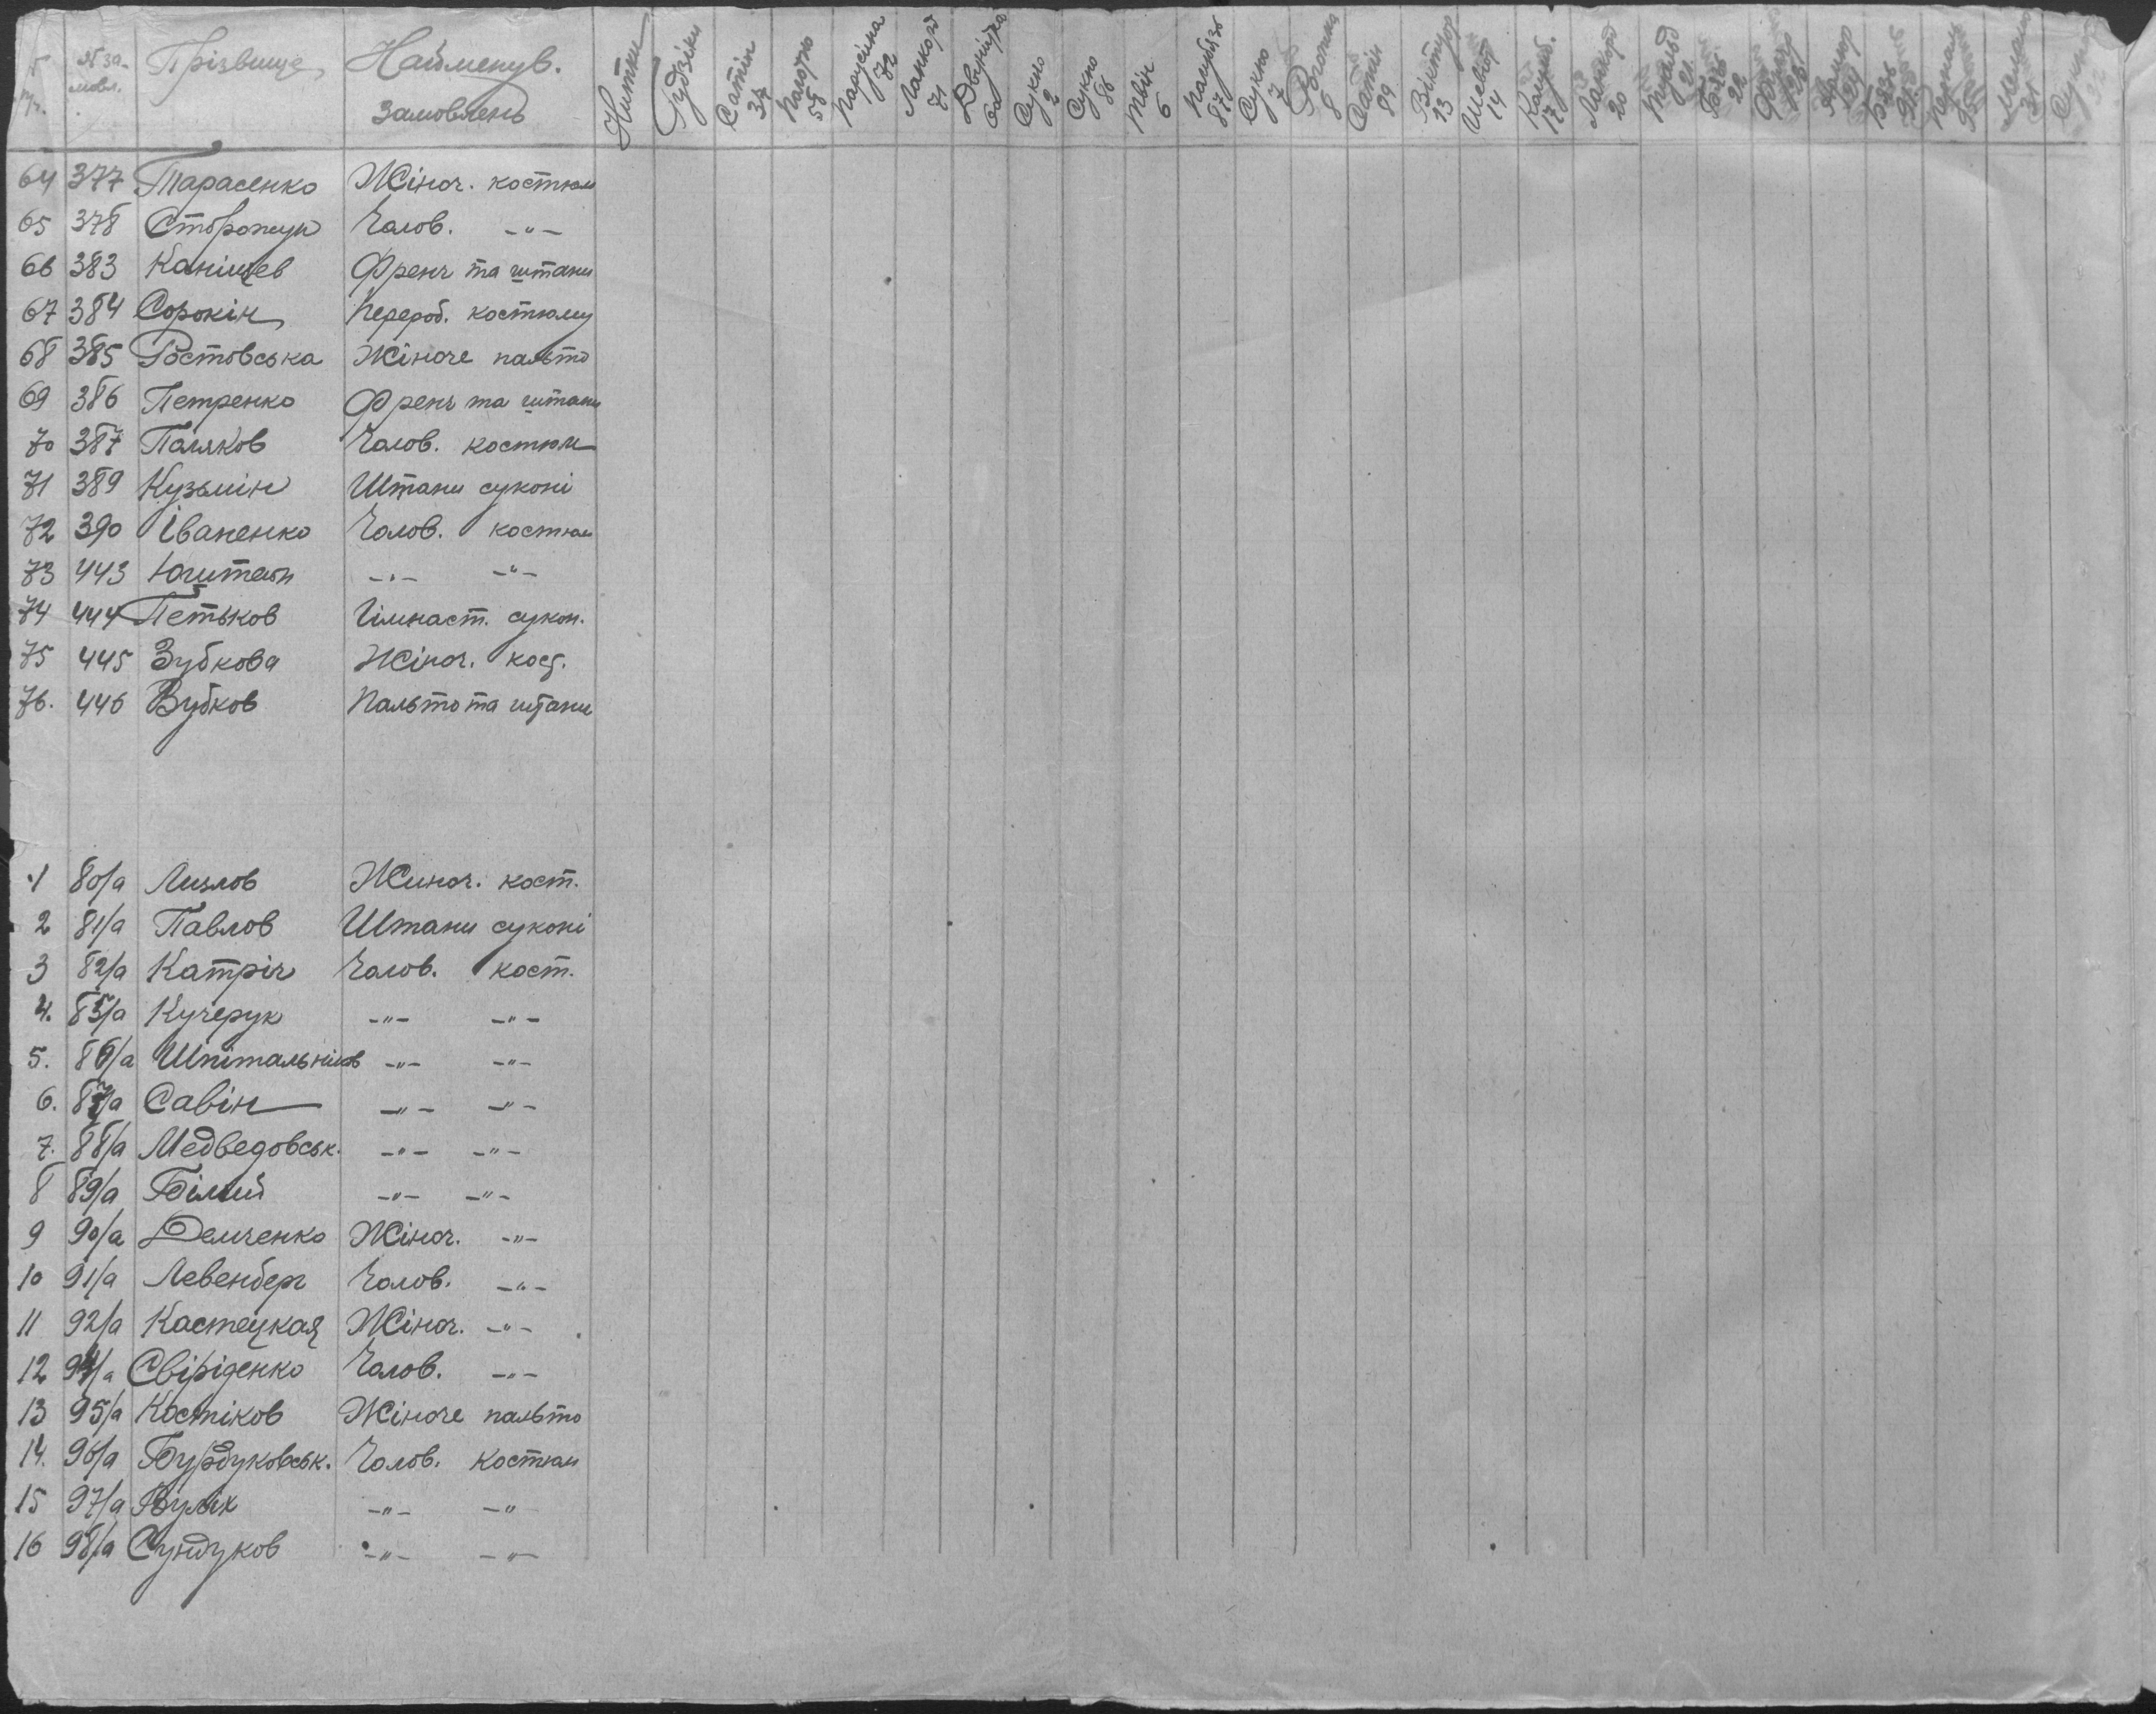 № замовл. Прізвище Найменув. замовлень Нитки Гудзіки Сатін 34 Полотно 55 Парусіна 72 Ланкорд 71 Двунітка 60 Сукно 2 Сукно 86 Твін 6 87 Сукно 7 Рогожка 8 Сатін 89 13 Шевіот 14 17 20 21 22 Сукно 32
64 377 Тарасенко Жіноч. костюм
65 378 Сторожук Чалов. -"-
66 383 Каніщев Френч та штани
67 384 Сорокін Перероб. костюму
68 385 Ростовська Жіноче пальто
69 386 Петренко Френч та штани
70 387 Паляков Чалов. костюм
71 389 Кузьмін Штани суконі
72 390 Іваненко Чолов. костюм
73 443 -"- -"-
74 444 Петьков Гімнаст. сукон.
75 445 Зубкова Жіноч. кост.
76. 446 Зубков Пальто та штани
1 80/а Лизлов Жиноч. кост.
2 81/а Павлов Штани суконі
3 82/а Катріч Чалов. кост.
4. 85/а Кучерук -"- -"-
5. 86/а Шпітальніков -"- -"-
6. 87/а Савін -"- -"-
7. 88/а Медведовськ. -"- -"-
8 89/а Білий -"- -"-
9 90/а Демченко Жіноч. -"-
10 91/а Левенберг Чолов. -"-
11 92/а Кастецкая Жіноч. -"-
12 94/а Свіріденко Чалов. -"-
13 95/а Костіков Жіноче пальто
14. 96/а Бурдуковськ. Чолов. костюм
15 97/а Вулих -"- -"
16 98/а Сундуков -"- -"-